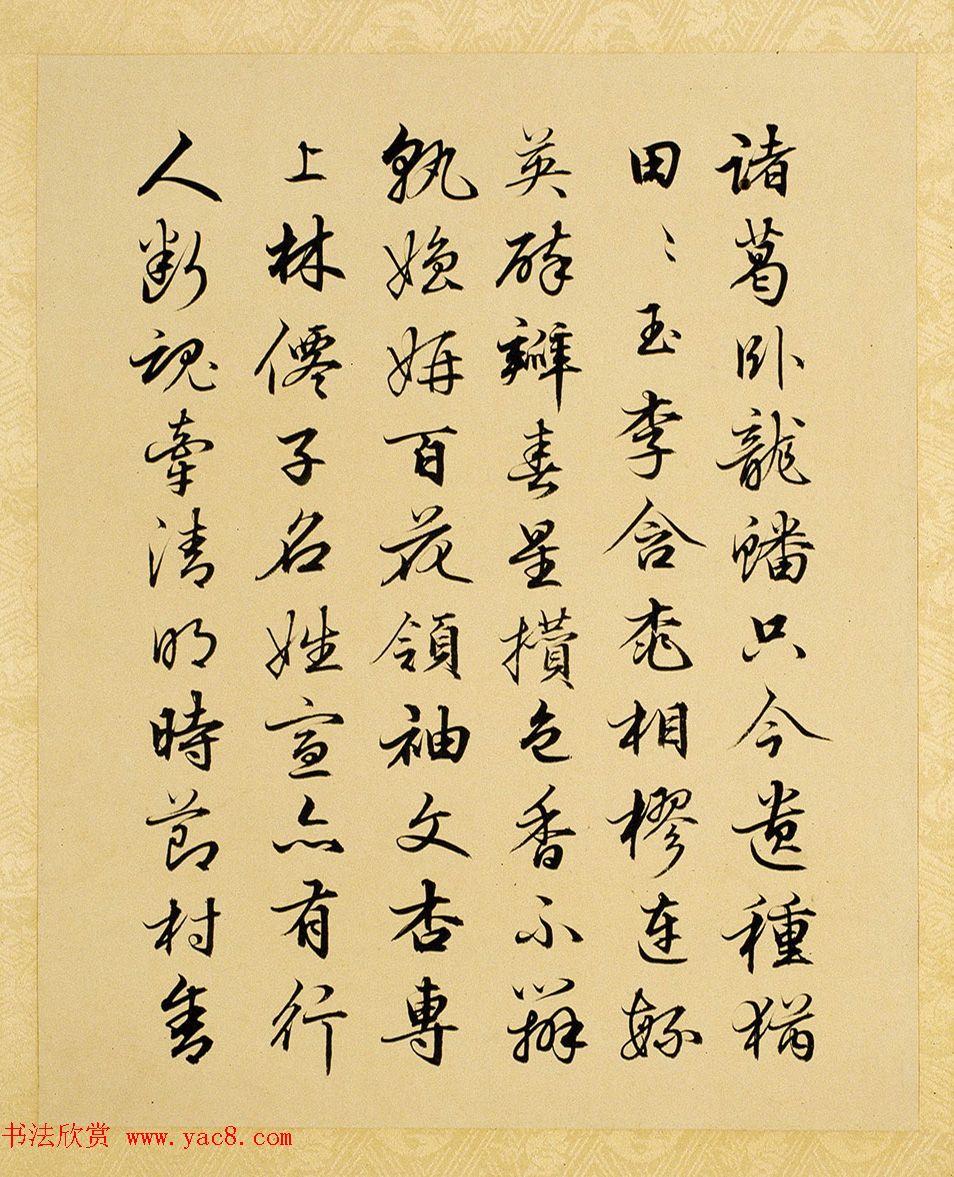 諸葛卧龍蟠只今遺種猶
田〻玉李含桃相樛連
英碎瓣春星攢色香不辨
孰媸妍百花領袖文杏專
上林僊子名姓宣亦有行
人断魂牽清明時節村舍
书法欣赏 www.yac8.com